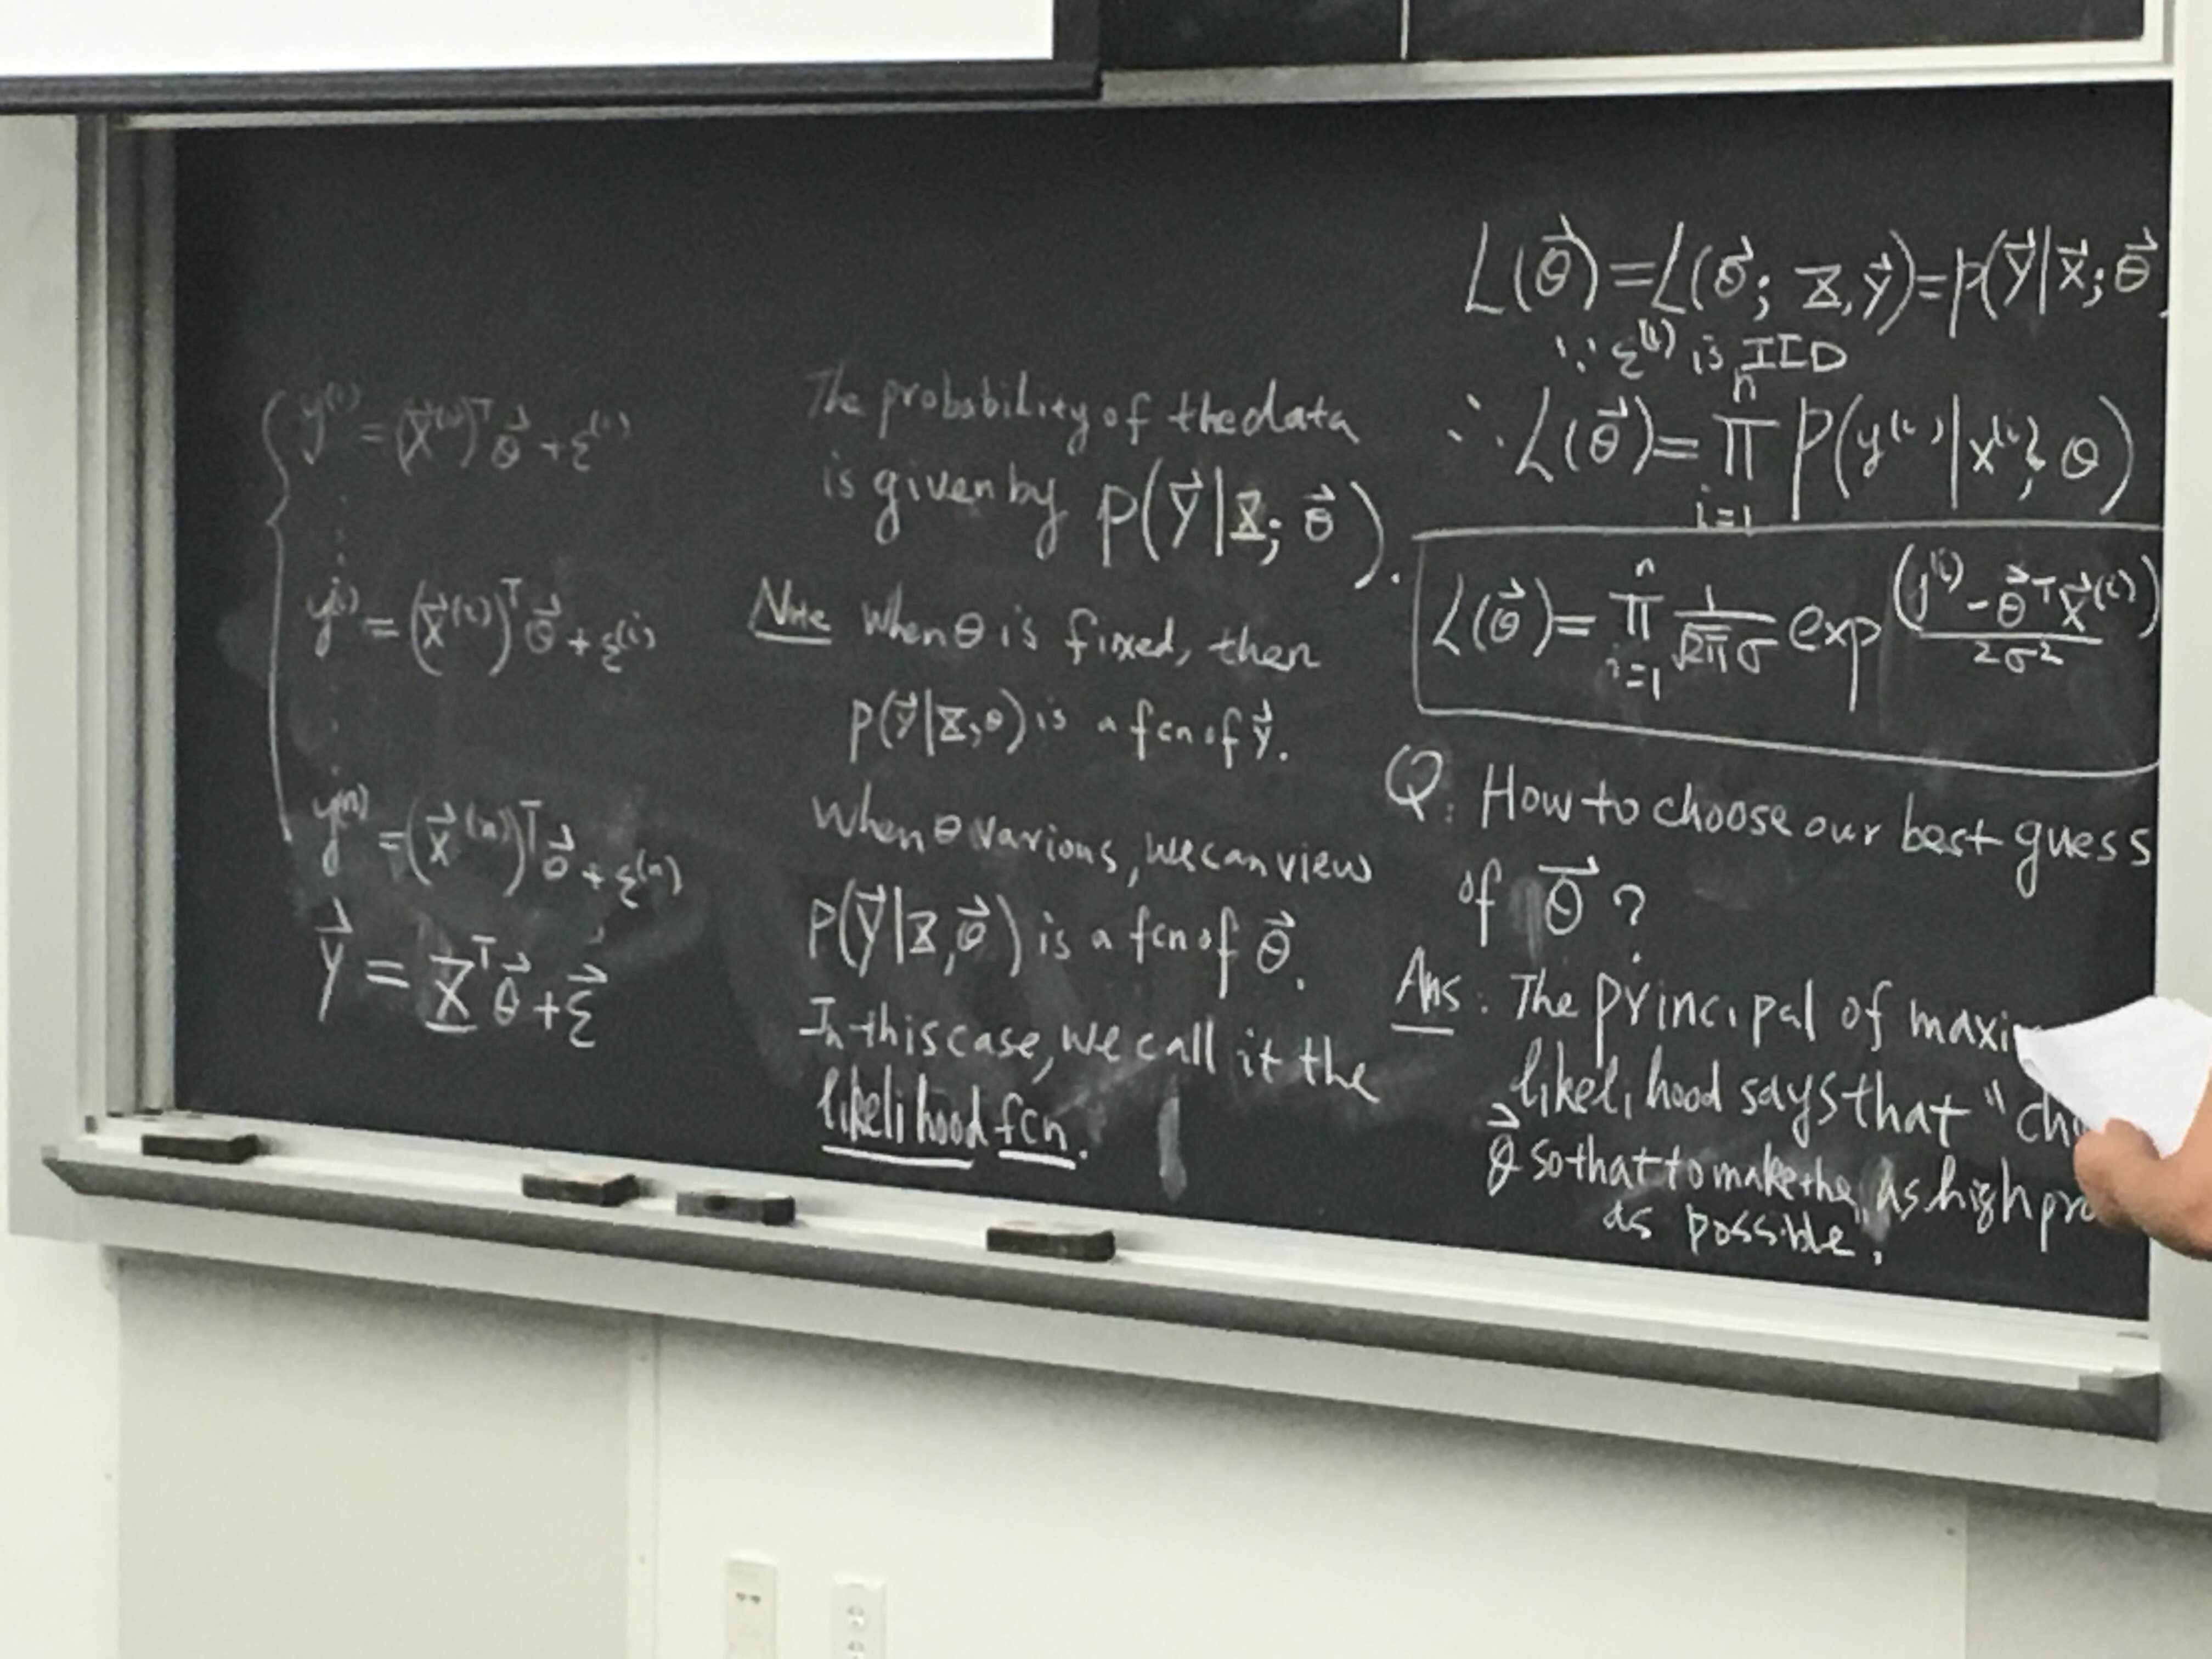 y⁽¹⁾ = (x⃗⁽¹⁾)ᵀ θ⃗ + ε⁽¹⁾
⋮
y⁽ⁱ⁾ = (x⃗⁽ⁱ⁾)ᵀ θ⃗ + ε⁽ⁱ⁾
⋮
y⁽ⁿ⁾ = (x⃗⁽ⁿ⁾)ᵀ θ⃗ + ε⁽ⁿ⁾
y⃗ = X̲ᵀ θ⃗ + ε⃗
The probability of the data
is given by p(y⃗ | X; θ⃗).
Note when θ is fixed, then
p(y⃗ | X, θ) is a fcn of y⃗.
when θ various, we can view
p(y⃗ | X, θ⃗) is a fcn of θ⃗.
In this case, we call it the
likelihood fcn.
L(θ⃗) = L(θ⃗; X, y⃗) = p(y⃗ | x⃗; θ⃗
∵ ε⁽ⁱ⁾ is IID
∴ L(θ⃗) = ∏ᵢ₌₁ⁿ p(y⁽ⁱ⁾ | x⁽ⁱ⁾; θ)
L(θ⃗) = ∏ᵢ₌₁ⁿ 1/(√2π σ) exp (y⁽ⁱ⁾ - θ⃗ᵀ x⃗⁽ⁱ⁾)/2σ²
Q: How to choose our best guess
of θ⃗ ?
Ans: The principal of maxi
likelihood says that "ch
θ⃗ so that to make the as high pro
as possible.